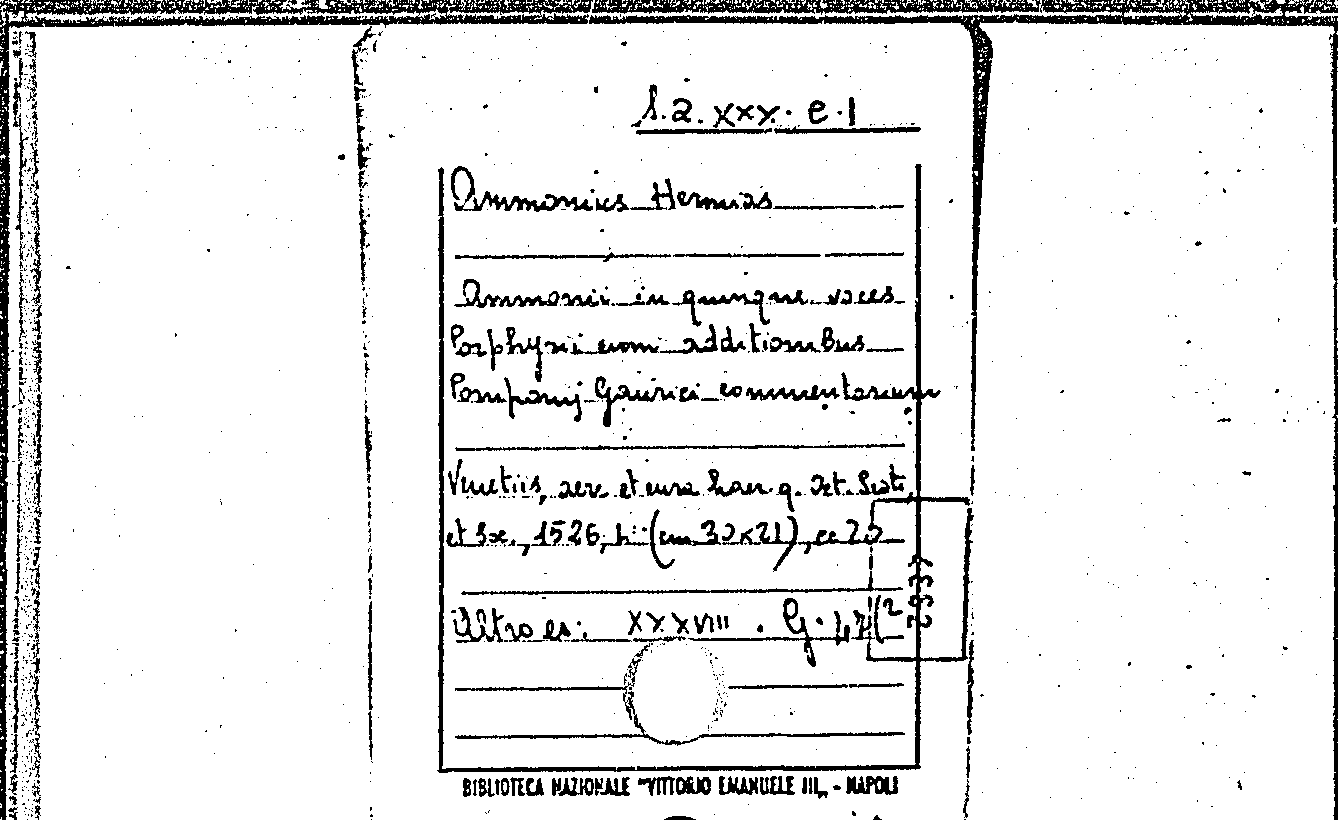 S.Q. XXX. e.1
Ammonius Hermias
Ammonii in quinque voces
Porphyrii cum additionibus
Pomponij Gaurici commentarium
Venetiis, aere et cura haer. q. Oct. Scoti
et Soc., 1526, (cm 30x21), cc
Altro es: XXXVIII . G. 47 (2
2937
BIBLIOTECA NAZIONALE "VITTORIO EMANUELE III„ - NAPOLI